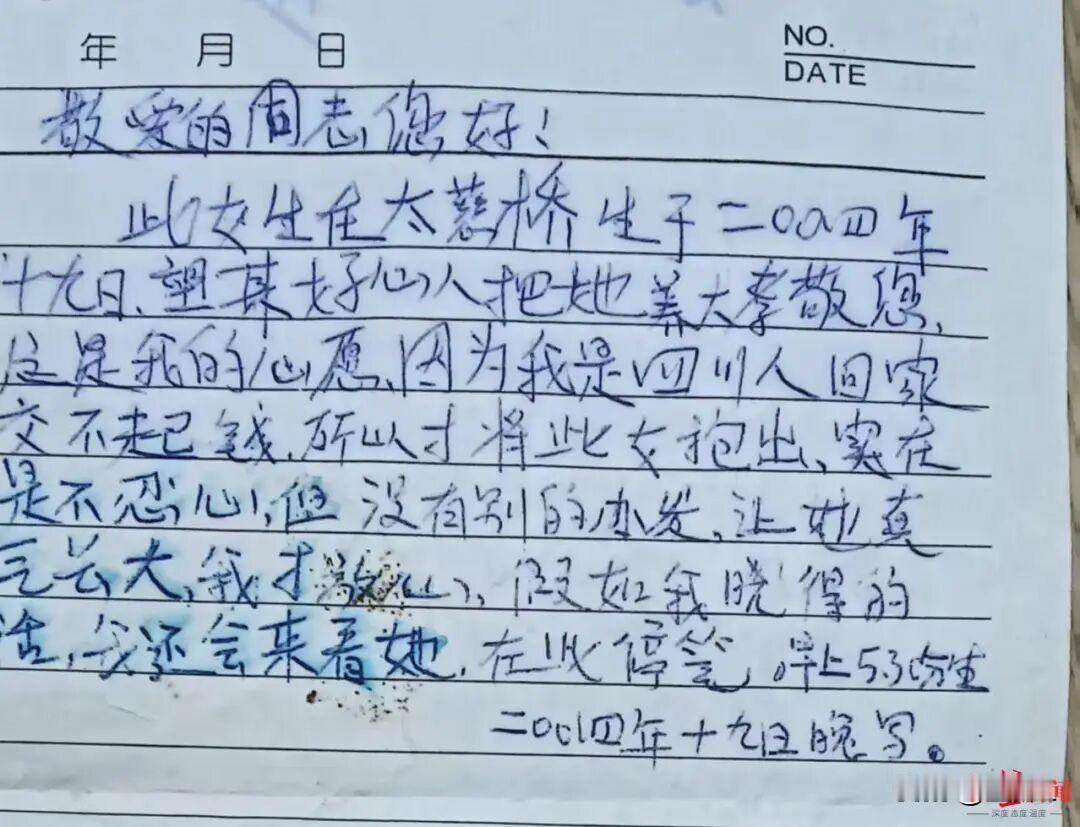 年 月 日 NO.
DATE
敬爱的同志您好!
此女生在太慈桥生于二00四年
十九日、望某好心人把她养大孝敬您、
这是我的心愿、因为我是四川人回家
交不起钱、所以才将此女抱出、实在
是不忍心、但没有别的办发、让她真
气长大、我才放心、假如我晓得的
话、我还会来看她、在此停笔、早上5.30分生
二00四年十九日晚写。
闻
深度 态度 温度